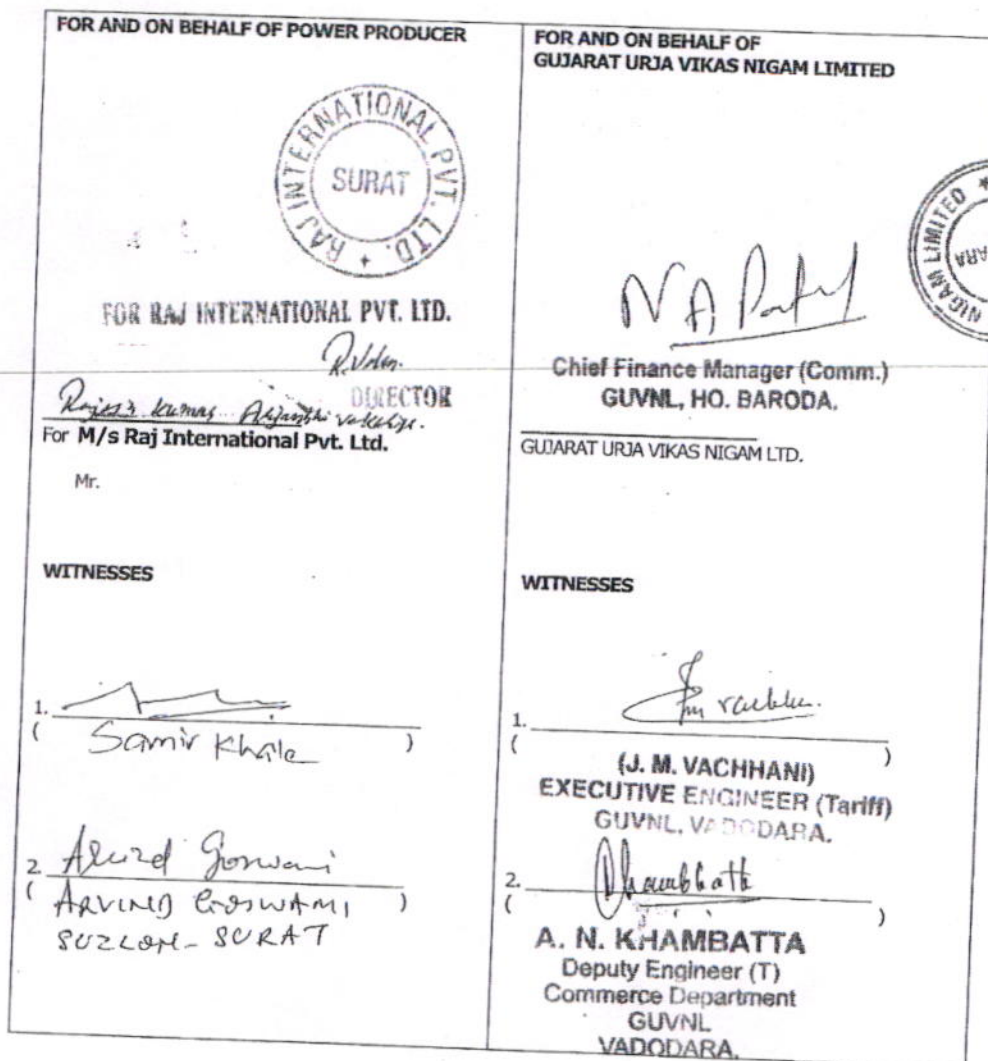 FOR AND ON BEHALF OF POWER PRODUCER
RAJ INTERNATIONAL PVT. LTD.
SURAT
FOR RAJ INTERNATIONAL PVT. LTD.
DIRECTOR
Kumar
For M/s Raj International Pvt. Ltd.
Mr.
WITNESSES
1.
( Samir Khale )
2. Goswami
( ARVIND GOSWAMI )
SUZLON - SURAT
FOR AND ON BEHALF OF
GUJARAT URJA VIKAS NIGAM LIMITED
NIGAM LIMITED
ARA
N A Patel
Chief Finance Manager (Comm.)
GUVNL, HO. BARODA.
GUJARAT URJA VIKAS NIGAM LTD.
WITNESSES
1.
( )
(J. M. VACHHANI)
EXECUTIVE ENGINEER (Tariff)
GUVNL, VADODARA.
2.
( )
A. N. KHAMBATTA
Deputy Engineer (T)
Commerce Department
GUVNL
VADODARA.